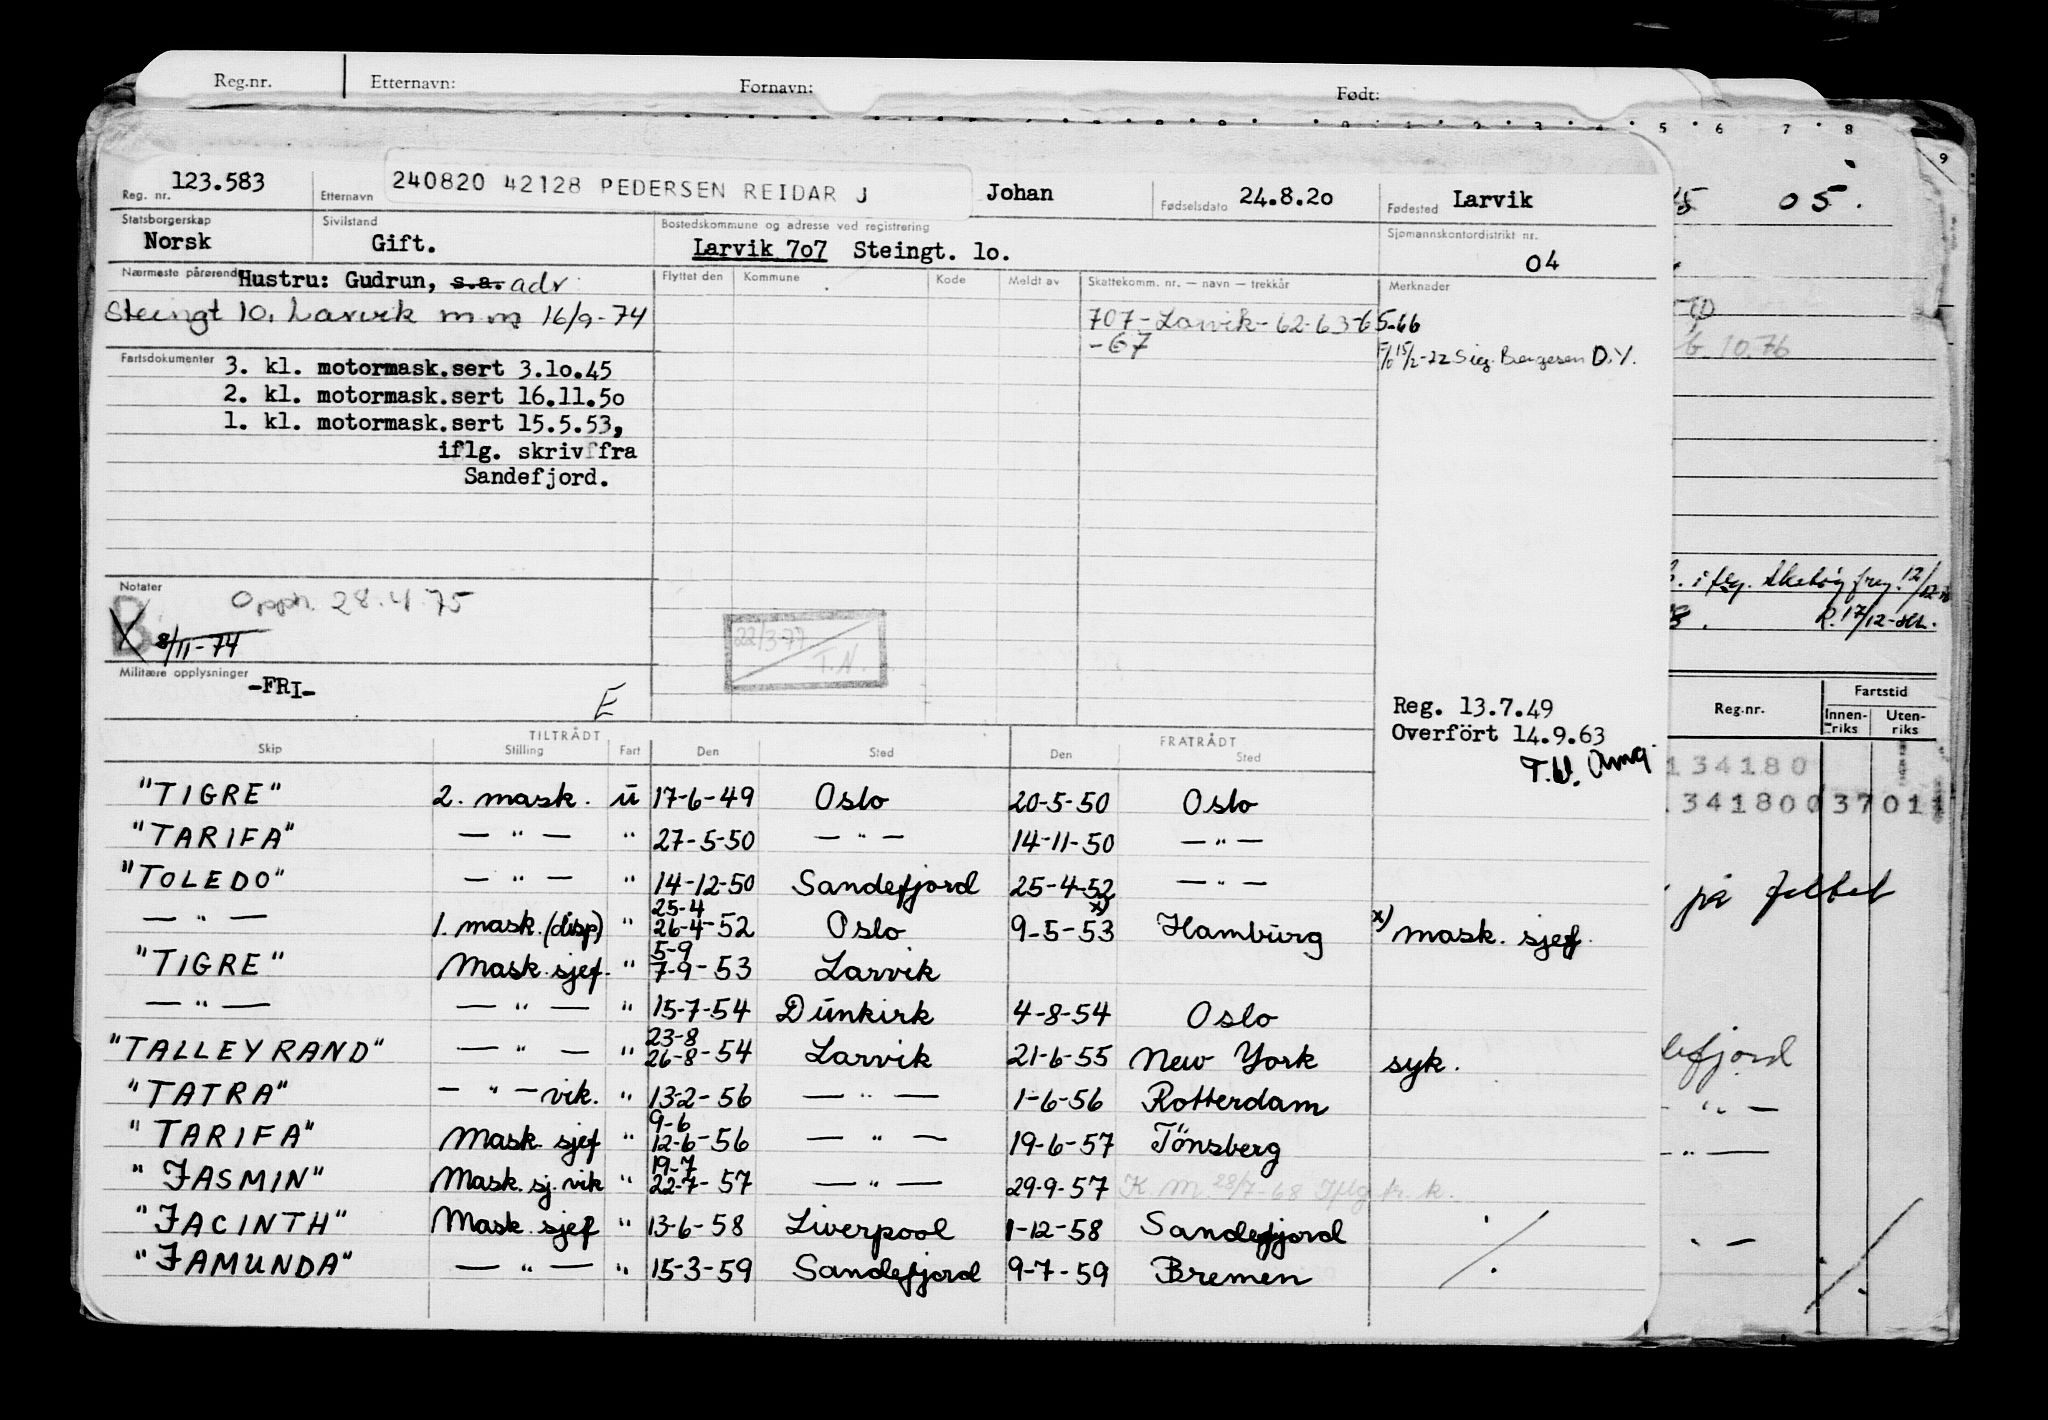 Reg.nr. Etternavn: Fornavn: Født:
5 6 7 8 9
Reg. nr. 123.583 Etternavn 240820 42128 PEDERSEN REIDAR J Johan Fødselsdato 24.8.20 Fødested Larvik
05.
Statsborgerskap Norsk Sivilstand Gift. Bostedskommune og adresse ved registrering Larvik 707 Steingt. 10. Sjømannskontordistrikt nr. 04
Nærmeste pårørende Hustru: Gudrun, s.a. adr Flyttet den Kommune Kode Meldt av Skattekomm. nr. — navn — trekkår Merknader
Steingt 10. Larvik m.m 16/9-74 707-Larvik-62-63-65-66
-67 Sig. Bergesen D.Y.
10.76
Fartsdokumenter 3. kl. motormask.sert 3.10.45
2. kl. motormask.sert 16.11.50
1. kl. motormask.sert 15.5.53,
iflg. skriv fra
Sandefjord.
Notater Opph. 28.4.75
B. 8/11-74
22/3-77
T.N.
Militære opplysninger -FRI- E
Reg. 13.7.49
Overfört 14.9.63
Reg.nr. Fartstid
Innenriks Utenriks
TILTRÅDT FRATRÅDT
Skip Stilling Fart Den Sted Den Sted
134180
"TIGRE" 2. mask. u 17-6-49 Oslo 20-5-50 Oslo
34180037011
"TARIFA" — " — " 27-5-50 — " — 14-11-50 — " —
"TOLEDO" — " — " 14-12-50 Sandefjord 25-4-52 — " —
på feltet
— " — 1. mask. (disp) " 25-4 26-4-52 Oslo x) 9-5-53 Hamburg x) mask. sjef.
"TIGRE" Mask. sjef. " 5-9 7-9-53 Larvik
— " — — " — " 15-7-54 Dunkirk 4-8-54 Oslo
"TALLEYRAND" — " — " 23-8 26-8-54 Larvik 21-6-55 New York syk.
"TATRA" — " — vik. " 13-2-56 — " — 1-6-56 Rotterdam
"TARIFA" Mask. sjef " 9-6 12-6-56 — " — 19-6-57 Tönsberg
"JASMIN" Mask. sj. vik " 19-7 22-7-57 — " — 29-9-57 K.M. 28/7-68 Iflg fr. k.
"JACINTH" Mask. sjef " 13-6-58 Liverpool 1-12-58 Sandefjord
"JAMUNDA" — " — " 15-3-59 Sandefjord 9-7-59 Bremen